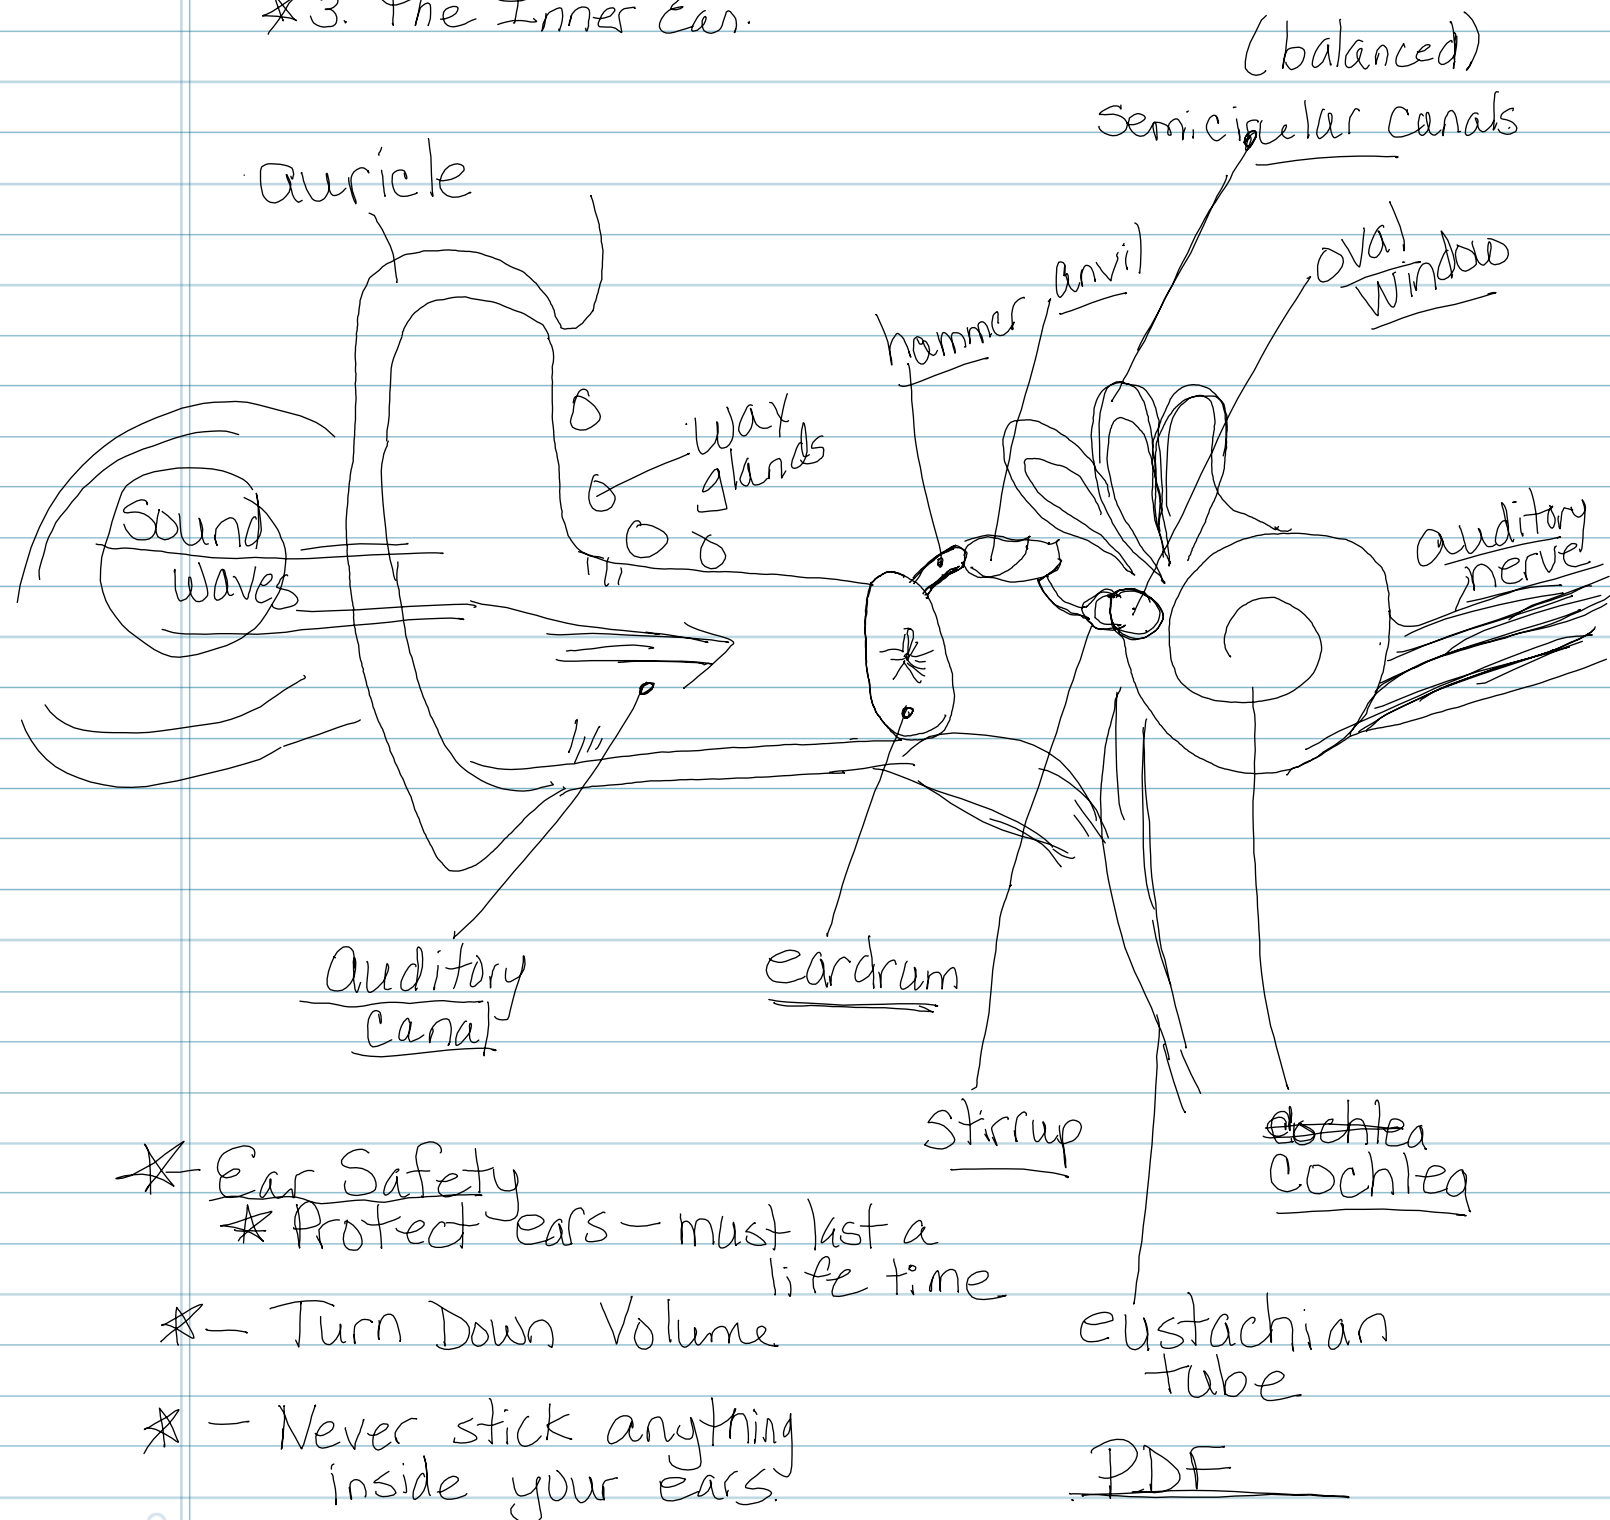 *3. The Inner Ear.
(balanced)
semicircular canals
auricle
oval
window
anvil
hammer
wax
glands
sound
waves
auditory
nerve
auditory
canal
eardrum
stirrup
cochlea
cochlea
* - Ear Safety
* Protect ears - must last a
life time
* - Turn Down Volume
eustachian
tube
* - Never stick anything
inside your ears.
PDF